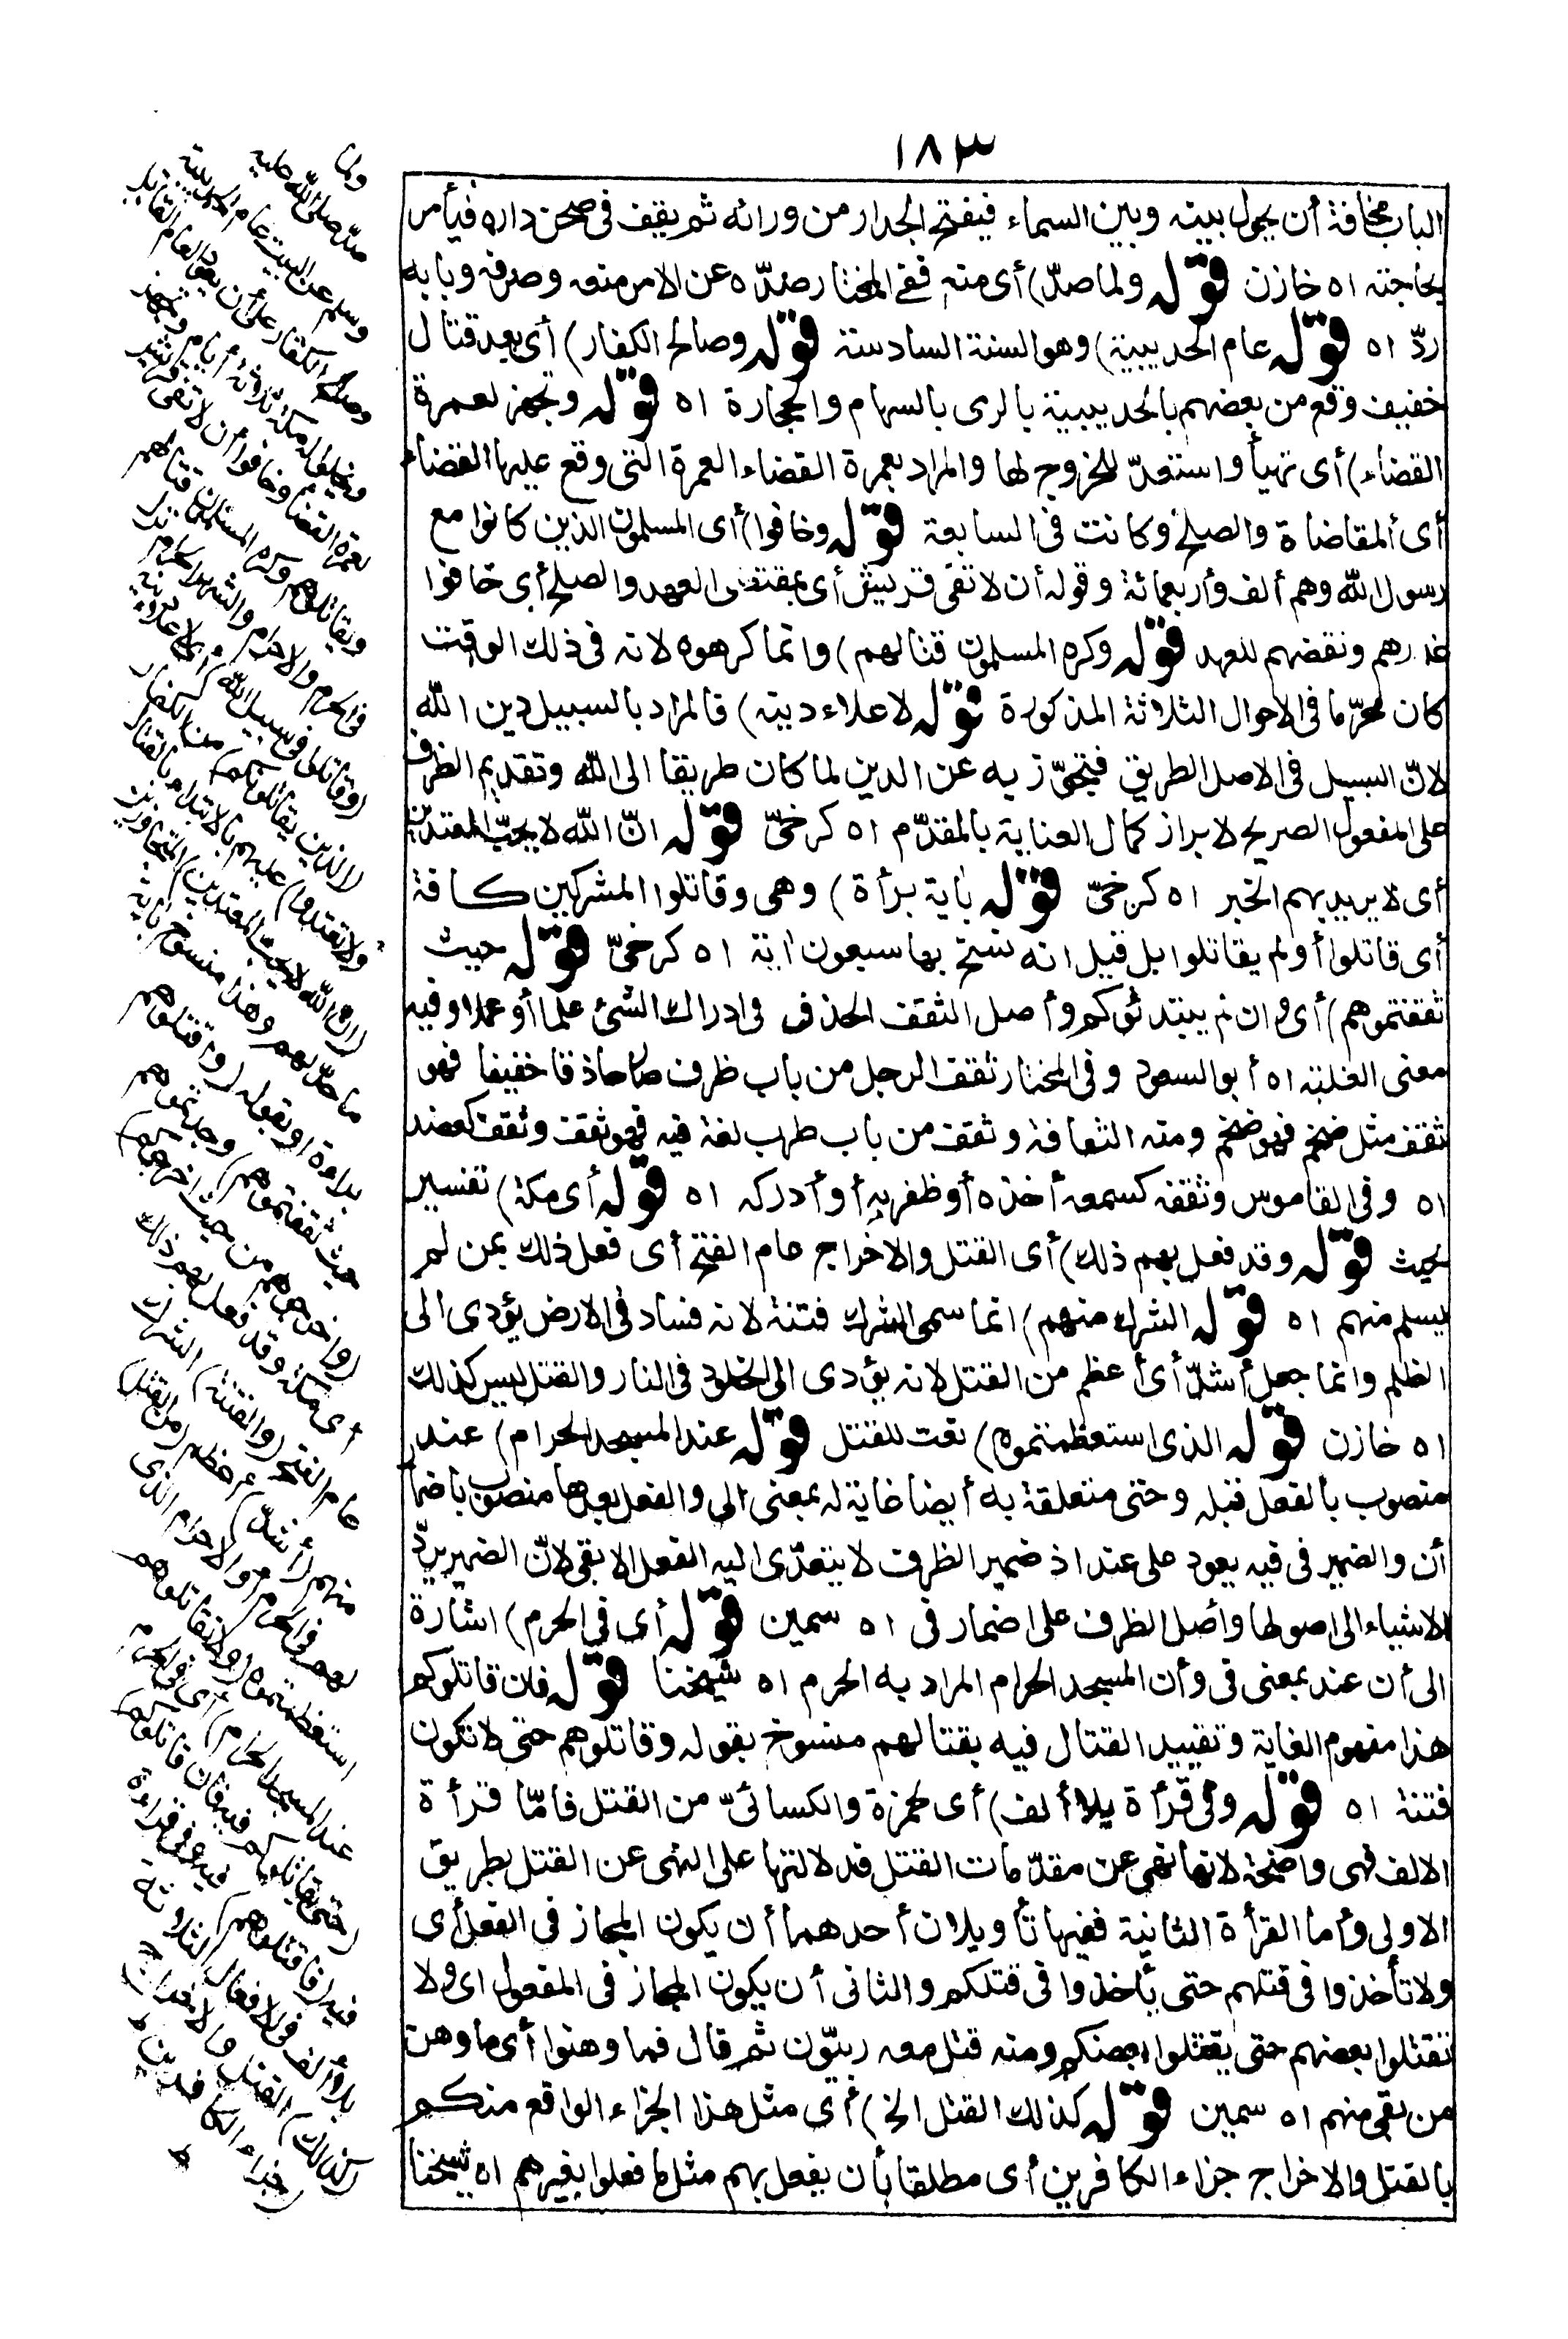 ١٨٣
الباب مخافة أن يحول بيته وبين السماء فيفتح الجدار من ورائه ثم يقف فى صحن داره فيأمر
بحاجته اه خازن قوله ولما صدّ) أى منه ففى المختار صدّه عن الامر منعه وصرفه وبابه
ردّ اه قوله عام الحديبية) وهو السنة السادسة قوله وصالح الكفار) أى بعد قتال
خفيف وقع من بعضهم بالحديبية بالرمى بالسهام والحجارة اه قوله وتجهز لعمرة
القضاء) أى تهيأ واستعدّ للخروج لها والمراد بعمرة القضاء العمرة التى وقع عليها القضاء
أى المقاضاة والصلح وكانت فى السابعة قوله وخافوا) أى المسلمون الذين كانوا مع
رسول الله وهم ألف وأربعمائة وقوله أن لا تفى قريش أى بمقتضى العهد والصلح أى خافوا
غدرهم ونقضهم للعهد قوله وكره المسلمون قتالهم) وانما كرهوه لانه فى ذلك الوقت
كان محرّما فى الاحوال الثلاثة المذكورة قوله لاعلاء دينه) فالمراد بالسبيل دين الله
لانّ السبيل فى الاصل الطريق فتجوّز به عن الدين لما كان طريقا الى الله وتقديم الظرف
على المفعول الصريح لابراز كمال العناية بالمقدّم اه كرخىّ قوله انّ الله لا يحبّ المعتدين
أى لا يريد بهم الخير اه كرخىّ قوله بآية برأة) وهى وقاتلوا المشركين كافة
أى قاتلوا أو لم يقاتلوا بل قيل انه نسخ بها سبعون اٰية اه كرخىّ قوله حيث
ثقفتموهم) أى وان لم يبتدئوكم وأصل الثقف الحذق فى ادراك الشئ علما أو عملا وفيه
معنى الغلبة اه أبو السعود وفى المختار ثقف الرجل من باب ظرف صار حاذقا خفيفا فهو
ثقف مثل ضخم فهو ضخم ومنه الثقافة وثقف من باب طرب لغة فيه فهو ثقف وثقف كعضد
اه وفى القاموس وثقفه كسمعه أخذه أو ظفر به أو أدركه اه قوله أى مكة) تفسير
لحيث قوله وقد فعل بهم ذلك) أى القتل والاخراج عام الفتح أى فعل ذلك بمن لم
يسلم منهم اه قوله الشرك منهم) انما سمى الشرك فتنة لانه فساد فى الارض يؤدى الى
الظلم وانما جعل أشدّ أى أعظم من القتل لانه يؤدى الى الخلود فى النار والقتل ليس كذلك
اه خازن قوله الذى استعظمتموه) نعت للقتل قوله عند المسجد الحرام) عند
منصوب بالفعل قبله وحتى متعلقة به أيضا غاية له بمعنى الى والفعل بعدها منصوب باضمار
أن والضمير فى فيه يعود على عند اذ ضمير الظرف لا يتعدّى اليه الفعل الا بفى لانّ الضمير يردّ
الاشياء الى اصولها وأصل الظرف على اضمار فى اه سمين قوله أى فى الحرم) اشارة
الى أن عند بمعنى فى وأن المسجد الحرام المراد به الحرم اه شيخنا قوله فان قاتلوكم
هذا مفهوم الغاية وتقييد القتال فيه بقتالهم منسوخ بقوله وقاتلوهم حتى لا تكون
فتنة اه قوله وفى قرأة بلا ألف) أى لحمزة والكسائىّ من القتل فامّا قرأة
الالف فهى واضحة لانها نهى عن مقدّمات القتل فدلالتها على النهى عن القتل بطريق
الاولى وأما القرأة الثانية ففيها تأويلان أحدهما أن يكون المجاز فى الفعل أى
ولا تأخذوا فى قتلهم حتى يأخذوا فى قتلكم والثانى أن يكون المجاز فى المفعول اى ولا
تقتلوا بعضهم حتى يقتلوا بعضكم ومنه قتل معه ربيّون ثم قال فما وهنوا أى ما وهن
من بقى منهم اه سمين قوله كذلك القتل الخ) أى مثل هذا الجزاء الواقع منكم
بالقتل والاخراج جزاء الكافرين أى مطلقا بأن يفعل بهم مثل ما فعلوا بغيرهم اه شيخنا
ولما
صدّ صلى الله عليه
وسلم عن البيت عام الحديبية
وصالح الكفار على أن يعود العام القابل
ويخلوا له مكة ثلاثة أيام وتجهز
لعمرة القضاء وخافوا أن لا تفى قريش
ويقاتلوهم وكره المسلمون قتالهم
فى الحرم والاحرام والشهر الحرام نزل
(وقاتلوا فى سبيل الله) أى لاعلاء دينه
(الذين يقاتلونكم) من الكفار
(ولا تعتدوا) عليهم بالابتداء بالقتال
(ان الله لا يحب المعتدين) المتجاوزين
ما حدّ لهم وهذا منسوخ بآية
براءة او بقوله (واقتلوهم
حيث ثقفتموهم) وجدتموهم
(وأخرجوهم من حيث اخرجوكم)
أى مكة وقد فعل بهم ذلك
عام الفتح (والفتنة) الشرك
منهم (أشدّ) أعظم (من القتل)
لهم فى الحرم والاحرام الذى
استعظمتموه (ولا تقاتلوهم
عند المسجد الحرام) أى فى الحرم
(حتى يقاتلوكم فيه فان قاتلوكم)
فيه (فاقتلوهم) فيه وفى قراءة
بلا ألف فى الافعال الثلاثة
(كذلك) القتل والاخراج
(جزاء الكافرين)